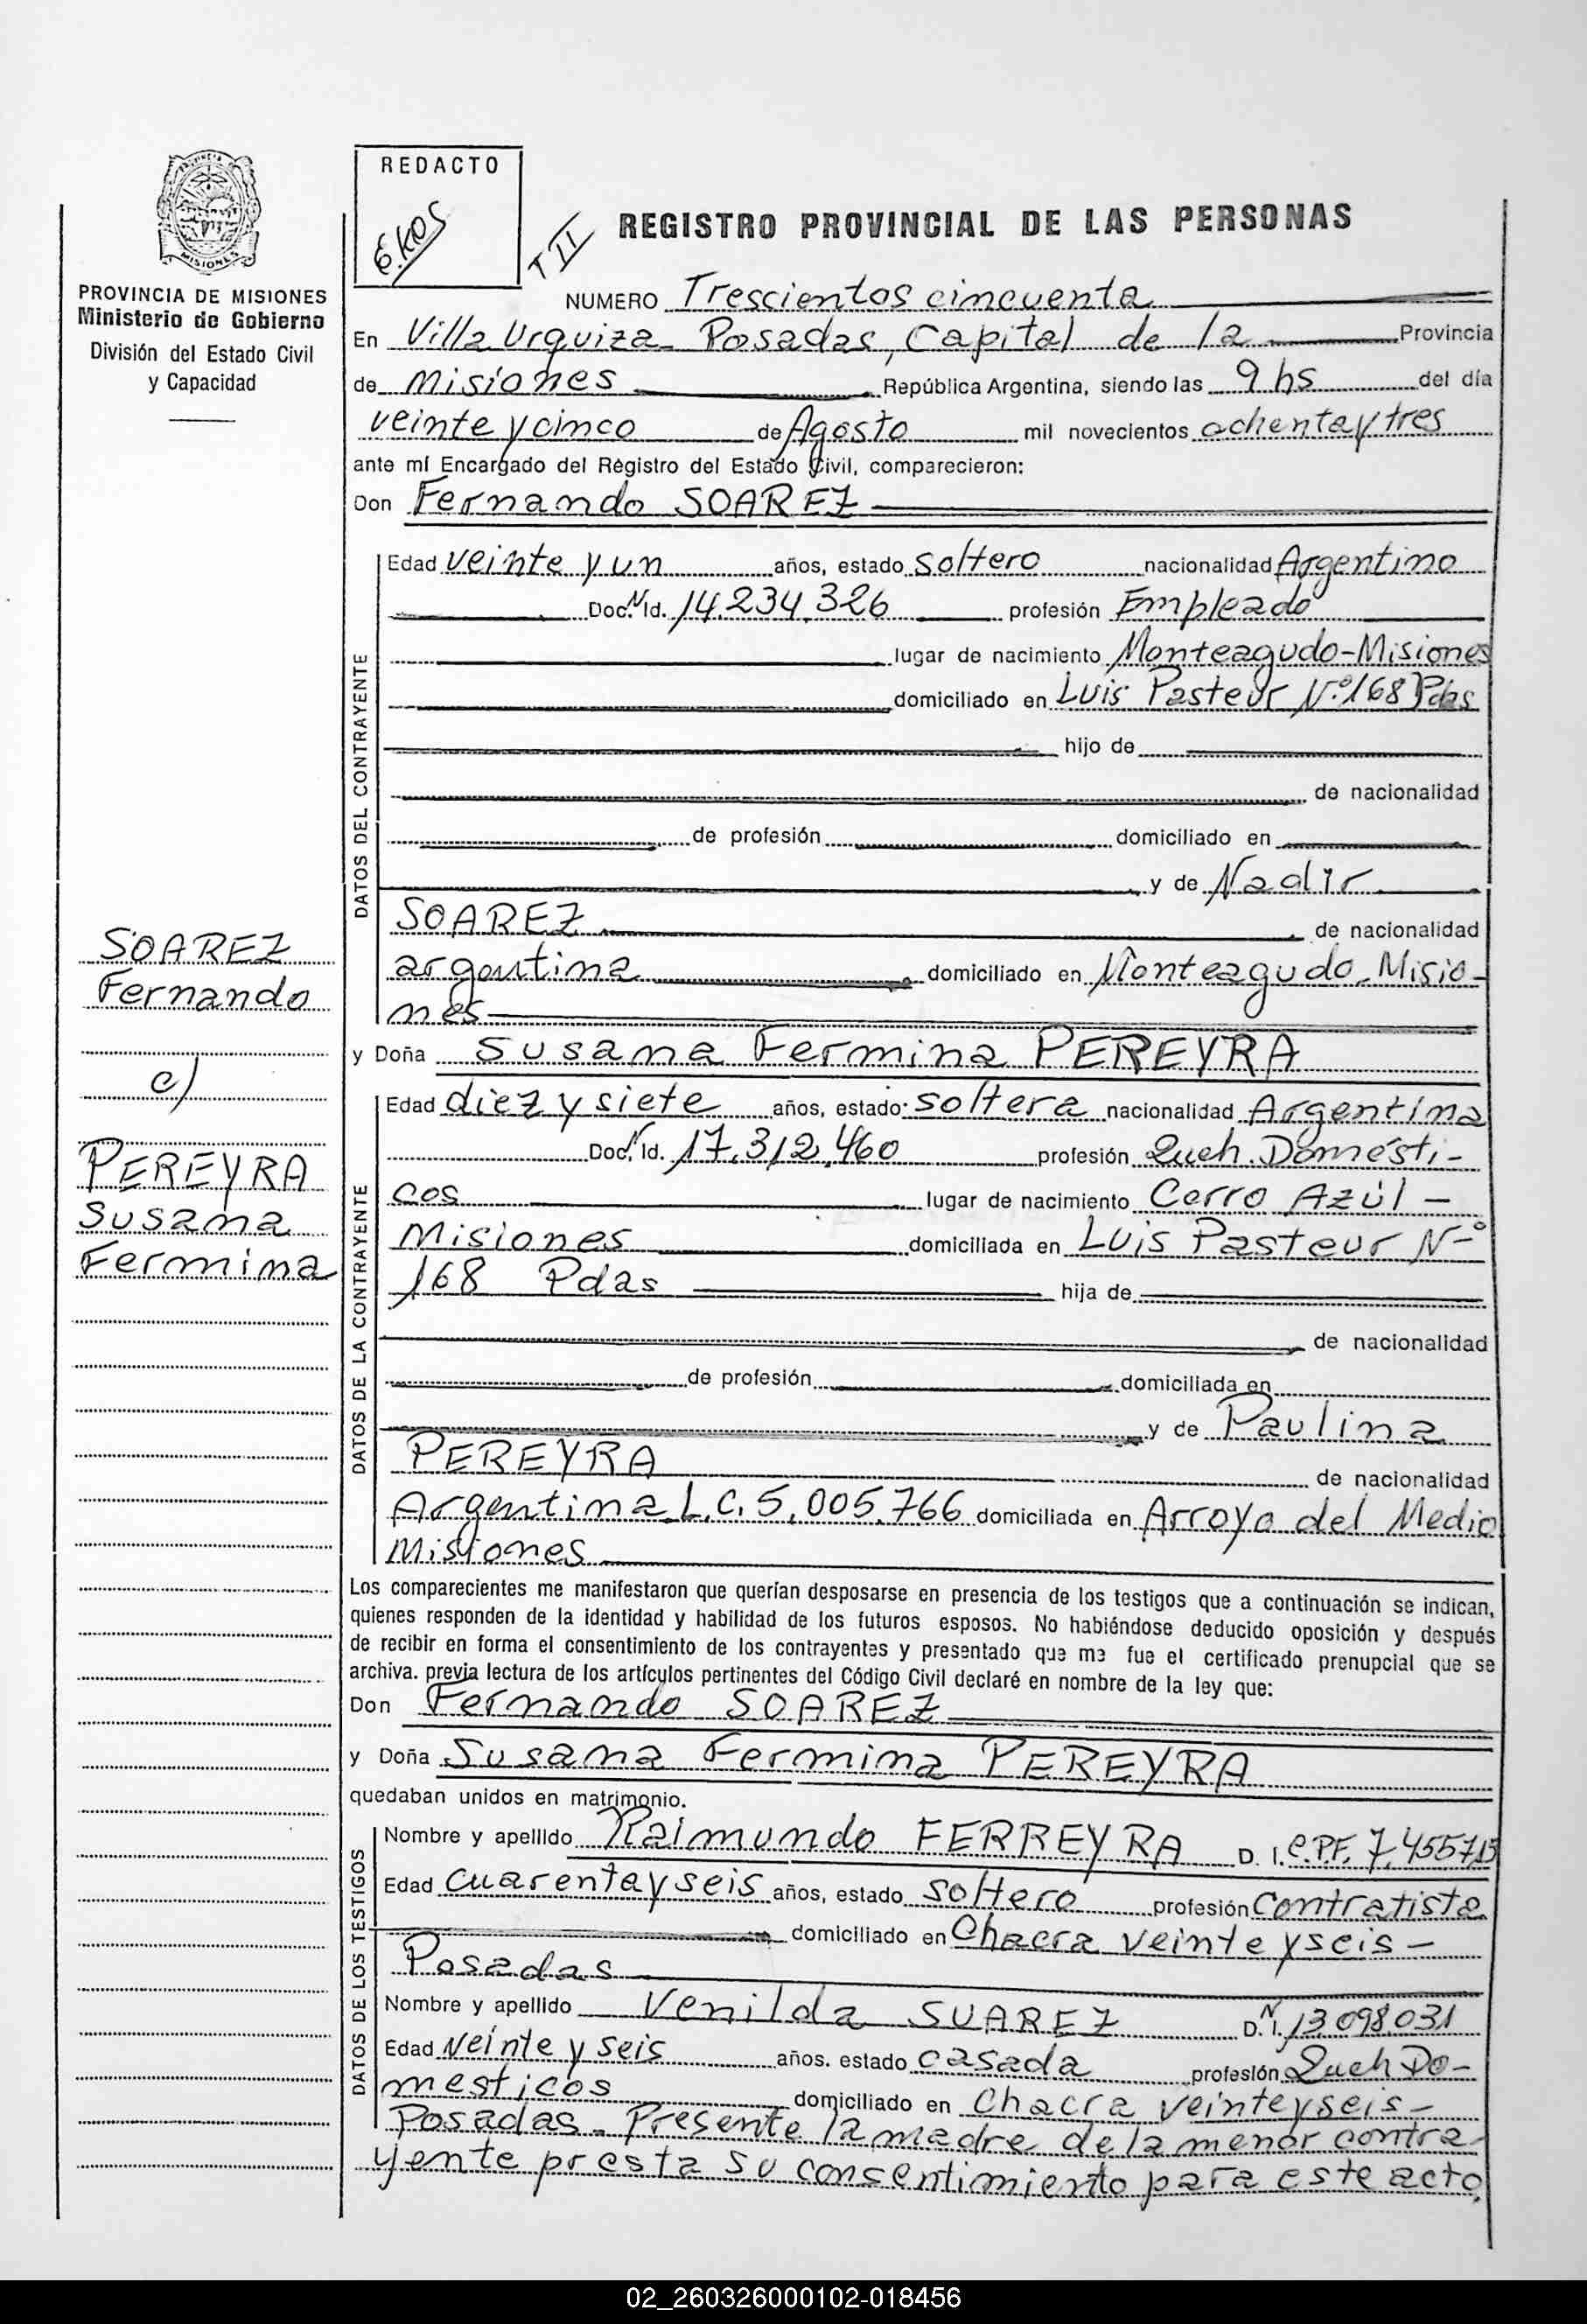 REDACTO
E.KOS
T II
REGISTRO PROVINCIAL DE LAS PERSONAS
PROVINCIA DE MISIONES
Ministerio de Gobierno
División del Estado Civil
y Capacidad
NUMERO Trescientos cincuenta
En Villa Urquiza - Posadas, Capital de la Provincia
de Misiones República Argentina, siendo las 9 hs del día
veinte y cinco de Agosto mil novecientos ochenta y tres
ante mí Encargado del Registro del Estado Civil, comparecieron:
Don Fernando SOAREZ
SOAREZ
Fernando
c)
PEREYRA
Susana
Fermina
DATOS DEL CONTRAYENTE
Edad veinte y un años, estado soltero nacionalidad Argentino
Doc. N Id. 14.234.326 profesión Empleado
lugar de nacimiento Monteagudo-Misiones
domiciliado en Luis Pasteur Nº 168 Pdas
hijo de
de nacionalidad
de profesión domiciliado en
y de Nadir
SOAREZ de nacionalidad
argentina domiciliado en Monteagudo-Misio-
nes
y Doña Susana Fermina PEREYRA
DATOS DE LA CONTRAYENTE
Edad diez y siete años, estado: soltera nacionalidad Argentina
Doc. N Id. 17.312.460 profesión Queh. Domésti-
cos lugar de nacimiento Cerro Azúl -
Misiones domiciliada en Luis Pasteur Nº
168 Pdas hija de
de nacionalidad
de profesión domiciliada en
y de Paulina
PEREYRA de nacionalidad
Argentina L.C. 5.005.766 domiciliada en Arroyo del Medio
Misiones
Los comparecientes me manifestaron que querían desposarse en presencia de los testigos que a continuación se indican,
quienes responden de la identidad y habilidad de los futuros esposos. No habiéndose deducido oposición y después
de recibir en forma el consentimiento de los contrayentes y presentado que me fue el certificado prenupcial que se
archiva. previa lectura de los artículos pertinentes del Código Civil declaré en nombre de la ley que:
Don Fernando SOAREZ
y Doña Susana Fermina PEREYRA
quedaban unidos en matrimonio.
DATOS DE LOS TESTIGOS
Nombre y apellido Raimundo FERREYRA D. I. C.P.F. 7.455.713
Edad cuarenta y seis años, estado soltero profesión Contratista
domiciliado en Chacra veinte y seis -
Posadas
Nombre y apellido Venilda SUAREZ D.N.I. 13.098.031
Edad veinte y seis años. estado casada profesión Queh Do-
mesticos domiciliado en Chacra veinte y seis -
Posadas - Presente la madre de la menor contra-
yente presta su consentimiento para este acto.
02_260326000102-018456